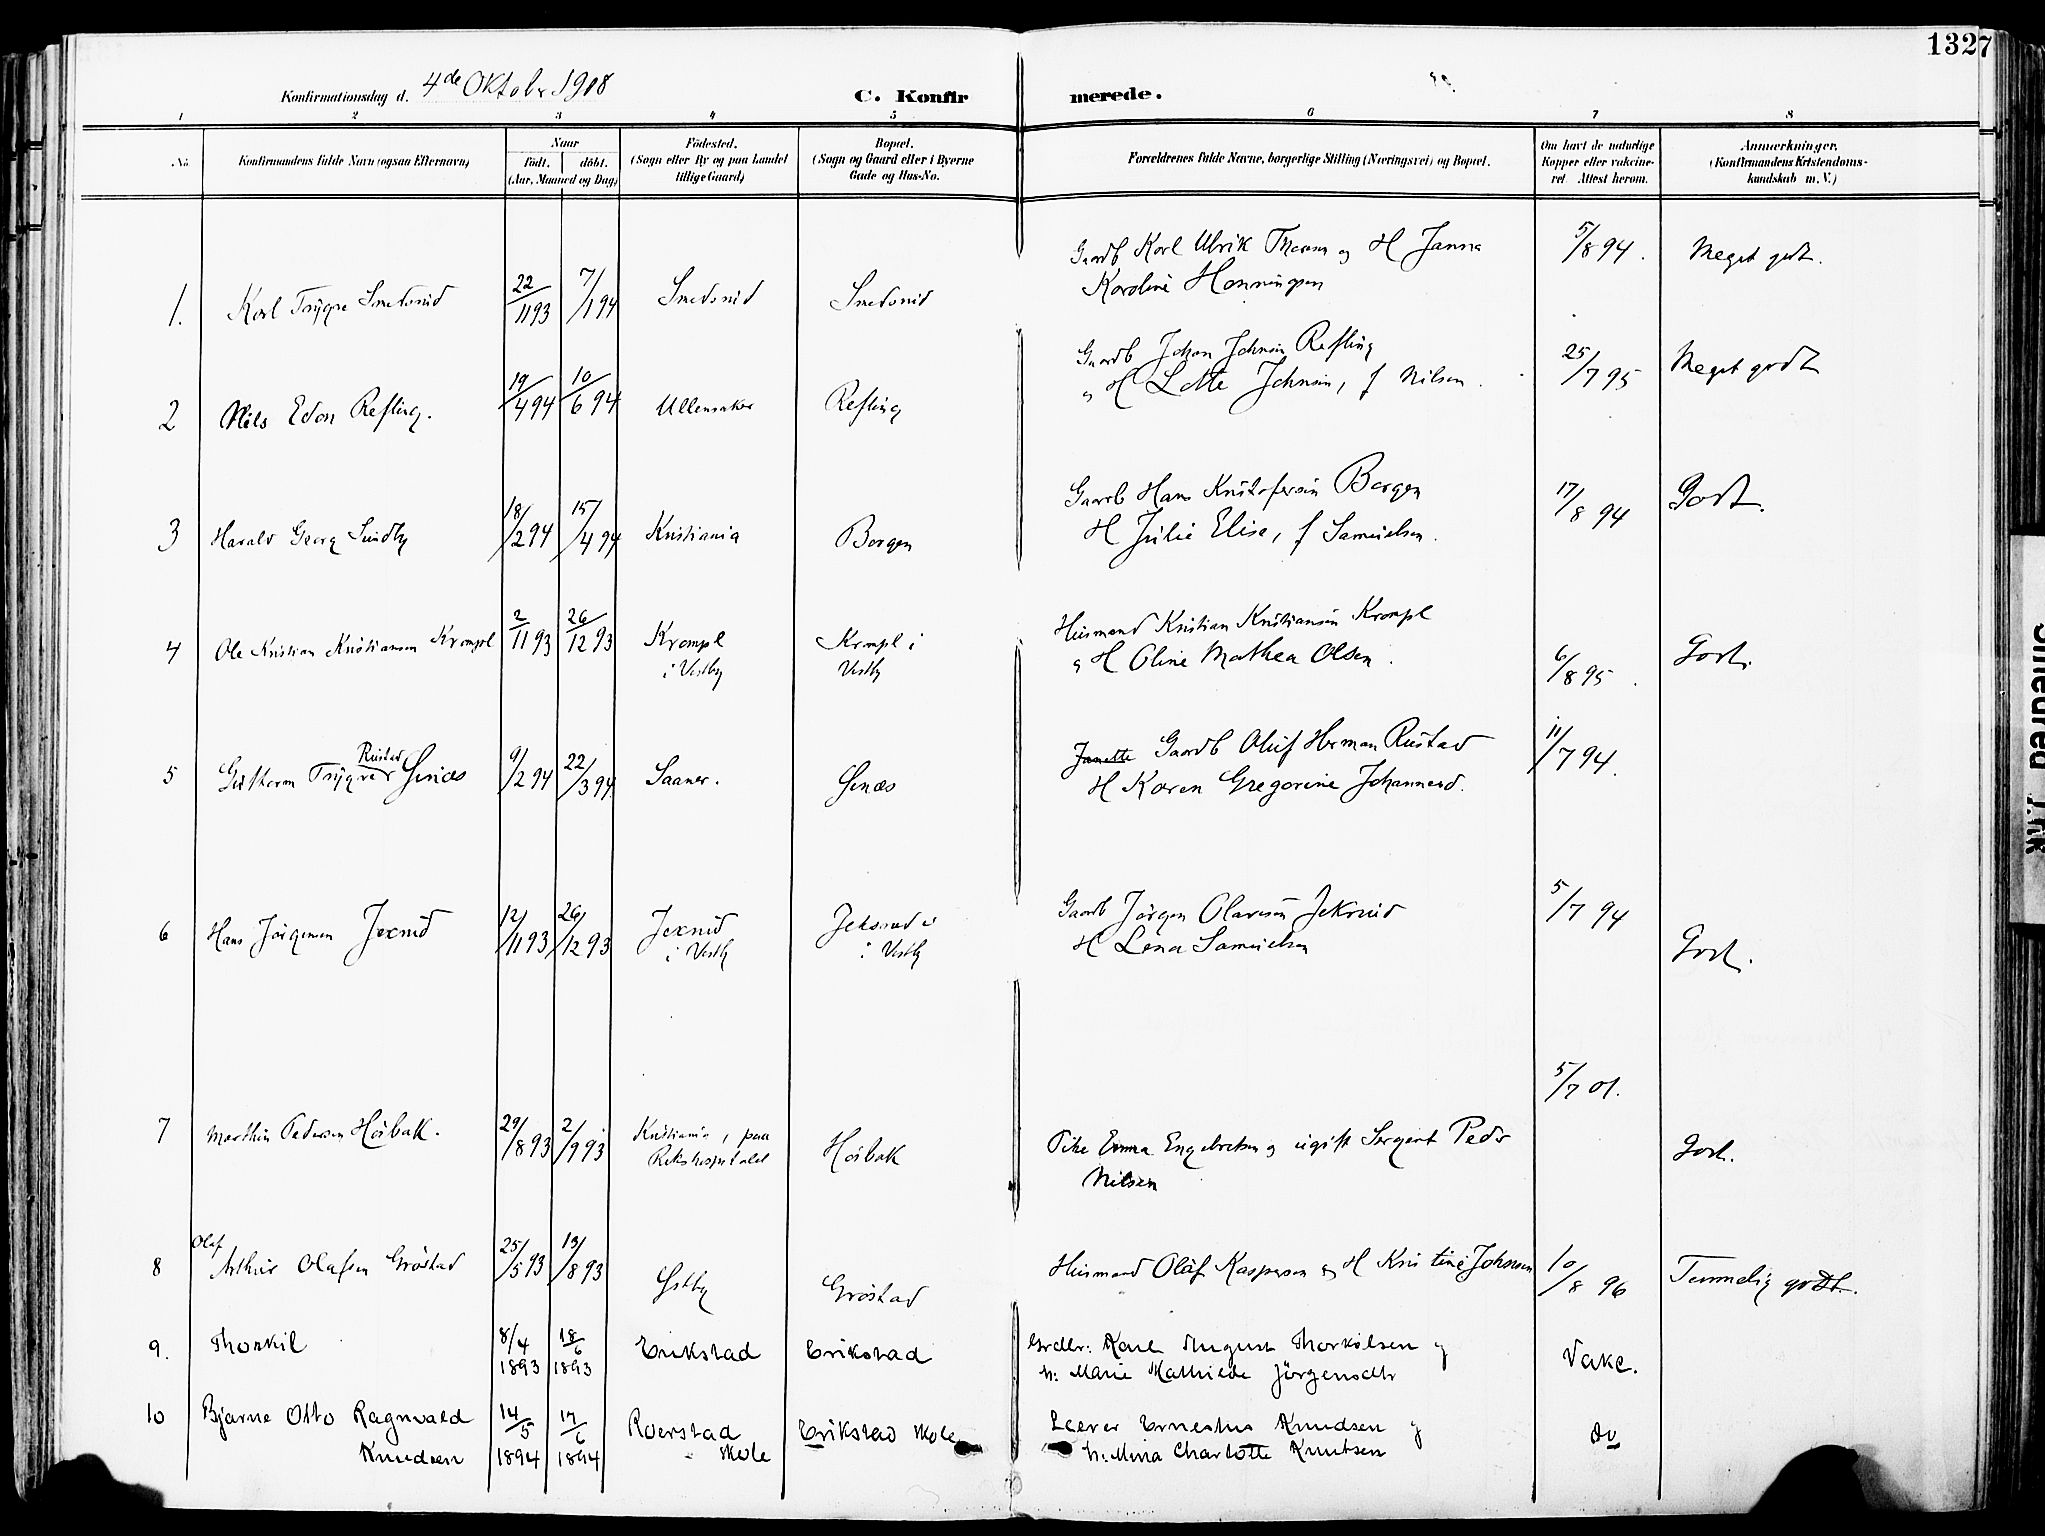 1327
Konfirmationsdag d. 4de Oktober 1908
C. Konfirmerede.
1 2 3 4 5 6 7 8
No. Konfirmandens fulde Navn (ogsaa Efternavn)
Naar
födt. döbt.
(Aar, Maaned og Dag)
Födested.
(Sogn eller By og paa Landet
tillige Gaard)
Bopæl.
(Sogn og Gaard eller i Byerne
Gade og Hus-No.
Forældrenes fulde Navne, borgerlige Stilling (Næringsvei) og Bopæl.
Om havt de naturlige
Kopper eller vaccine-
ret Attest herom.
Anmærkninger.
(Konfirmandens Kristendoms-
kundskab m. V.)
Gaardb Karl Ulrik og H Janna 5/8 94. Meget godt.
Karoline Henningsen
1. Karl Trygve Smedsrud 22/11 93 7/1 94 Smedsrud Smedsrud
Gaardb Johan Johnsen Refling 25/7 95 Meget godt
og H Lotte Johnsen, f Nilsen.
2 Nils Edon Refling. 19/4 94 10/6 94 Ullensaker Refling
Gaardb Hans Kristofersen Borgen 17/8 94 Godt.
H Julie Elise, f Samuelsen.
3 Harald Georg Sundby 18/2 94 15/4 94 Kristiania Borgen
Husmand Kristian Kristiansen Krompl
og H Oline Mathea Olsen. 6/8 95. Godt.
4 Ole Kristian Kristiansen Krompl 2/11 93 26/12 93 Krompl Krompl i
i Vestby Vestby
Janette Gaardb Oluf Herman Rustad 11/7 94.
H Karen Gregorine Johannesd.
Rustad
5 Guthorm Trygve Senæs 9/2 94 22/3 94 Saaner. Senæs
Gaardb Jörgen Olavesen Jeksrud 5/7 94
H Lena Samuelsen Godt.
6 Hans Jörgensen Jexrud 12/11 93 26/12 93 Jexrud Jeksrud
i Vestby i Vestby
5/7 01.
7 Marthin Pedersen Høibak. 29/8 93 2/9 93 Kristiania, paa Høibak
Rikshospitalet
Pike Emma Engebretsen og ugift Sergent Peder Godt.
Nilsen
Olaf
8 Arthur Olafsen Gröstad 25/5 93 13/8 93 Estby Gröstad
Husmand Olaf Kaspersen og H Kristine Johnsen 10/8 96 Temmelig godt.
9. Thorkil 8/4 1893 18/6 1893 Erikstad Erikstad
Grdbr: Karl August Thorkilsen og Vakc.
h: Marie Mathilde Jörgensdtr
10 Bjarne Otto Ragnvald 14/5 17/6 Roerstad Erikstad skole
Knudsen 1894 1894 skole
Lærer Ernestus Knudsen og do
h: Mina Charlotte Knutsen